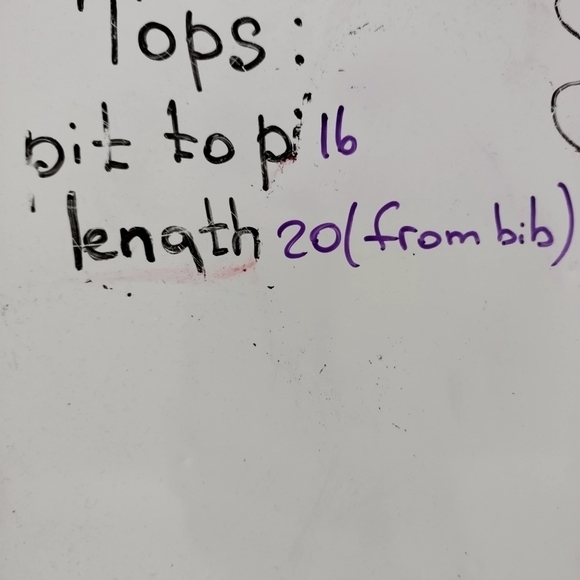 Tops:
pit to pit 16
length 20 (from bib)